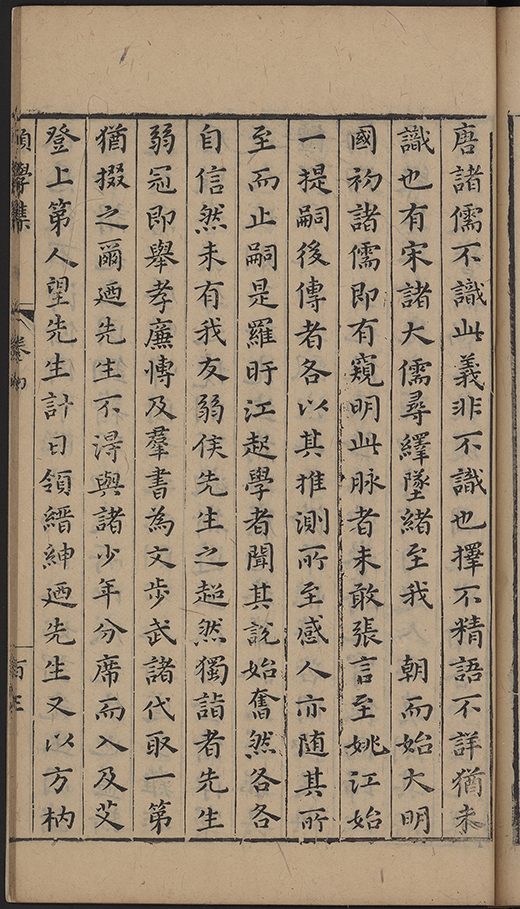 唐諸儒不識此義非不識也擇不精語不詳猶未
識也有宋諸大儒尋繹墜緒至我　朝而始大明
國初諸儒即有窺明此脉者未敢張言至姚江始
一提嗣後傳者各以其推測所至感人亦随其所
至而止嗣是羅盱江起學者聞其說始奮然各各
自信然未有我友弱侯先生之超然獨詣者先生
弱冠即舉孝廉慱及羣書為文步武諸代取一第
猶掇之爾廼先生不淂與諸少年分席而入及艾
登上第人望先生計日領縉紳廼先生又以方枘
學集